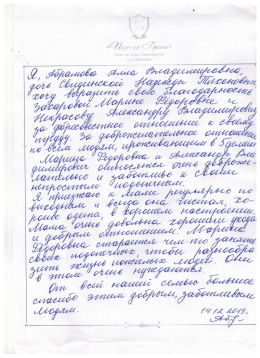 Я, Абрамова Алла Владимировна,
дочь Свидинской Надежды Тихоновны,
хочу выразить свою благодарность
Захаровой Марине Федоровне и
Некрасову Александру Владимировичу
за добросовестное отношение к своему
труду. За доброжелательное отношение
ко всем людям, проживающим в Здании
Марина Федоровна и Александр Вла-
димирович относятся очень доброже-
лательно и заботливо к своим
непростым подопечным.
Я приезжаю к маме регулярно по
выходным и всегда она чистая, хо-
рошо одета, в хорошем настроении
Мама очень довольна хорошим уходом
и добрым отношением. Марина
Федоровна старается чем-то занять
своих подопечных, чтобы разнообра-
зить жизнь пожилых людей. Они
в этом очень нуждаются.
От всей нашей семьи большое
спасибо этим добрым, заботливым
людям.
14.12.2019.